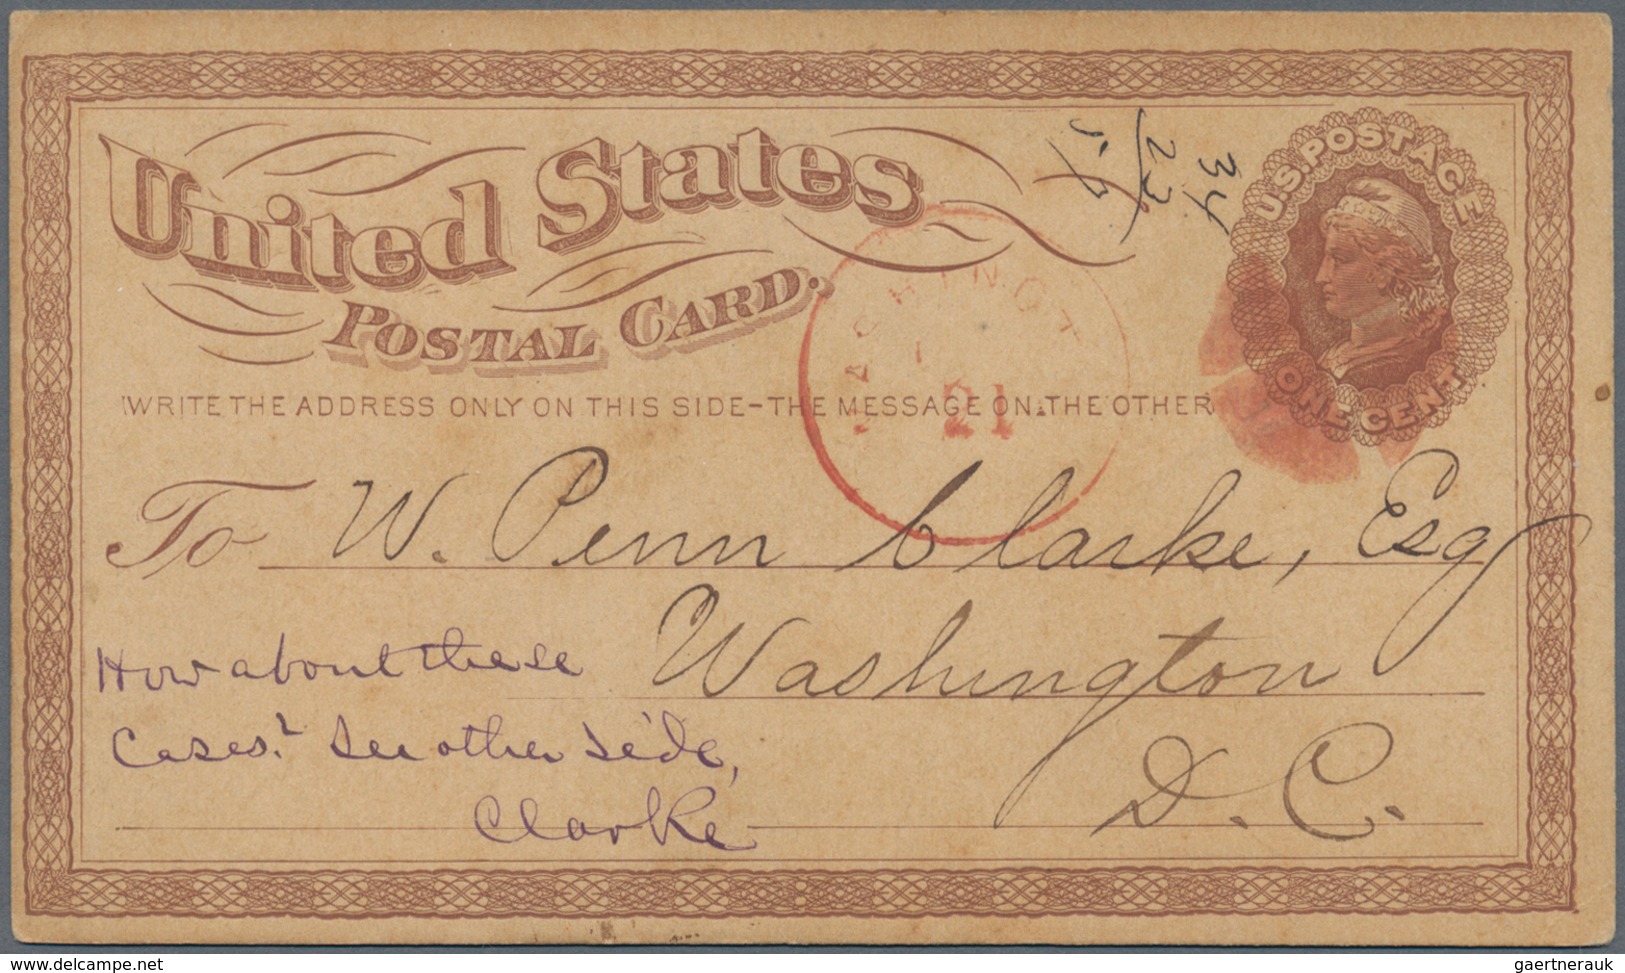 United States
POSTAL CARD.
U.S. POSTAGE
ONE CENT
34
23
WASHINGT
21
WRITE THE ADDRESS ONLY ON THIS SIDE-THE MESSAGE ON THE OTHER
To W. Penn Clarke, Esq
Washington
D.C.
How about these
Cases? See other Side,
Clarke
www.delcampe.net
gaertnerauk